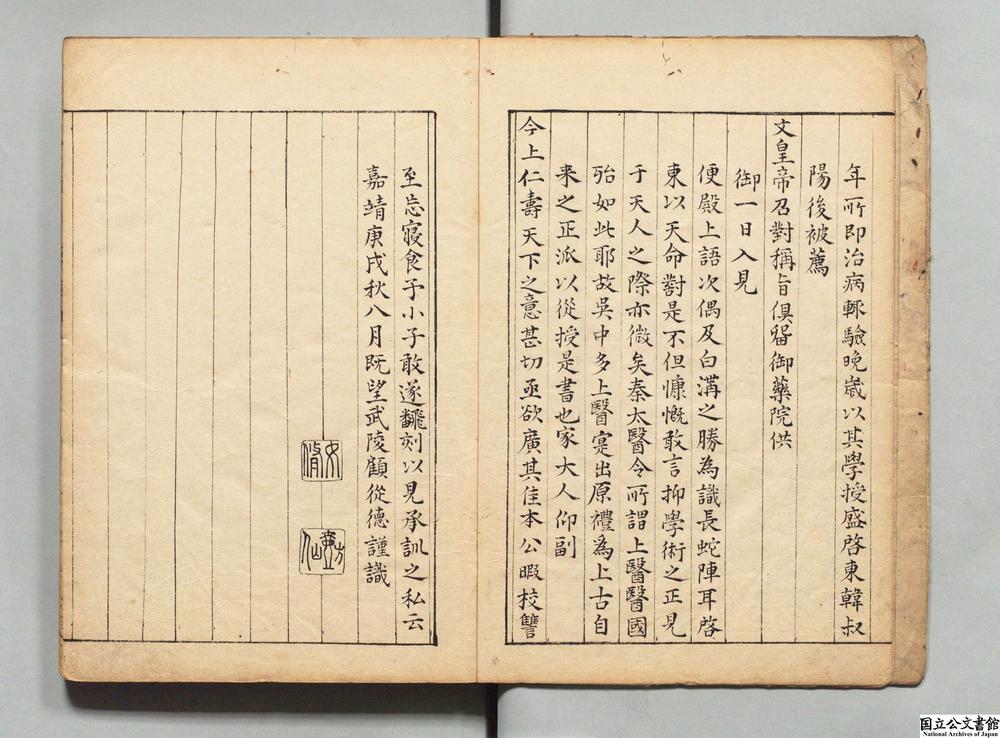 年所即治病輙驗晚歲以其學授盛啓東韓叔
陽後被薦
文皇帝召對稱旨俱畱御藥院供
御一日入見
便殿上語次偶及白溝之勝為識長蛇陣耳啓
東以天命對是不但慷慨敢言抑學術之正見
于天人之際亦微矣秦太醫令所謂上醫醫國
殆如此耶故吳中多上醫寔出原禮為上古自
来之正派以從授是書也家大人仰副
今上仁壽天下之意甚切亟欲廣其佳本公暇校讐
至忘寢食予小子敢遂翻刻以見承訓之私云
嘉靖庚戌秋八月既望武陵顧從德謹識
國立公文書館
National Archives of Japan